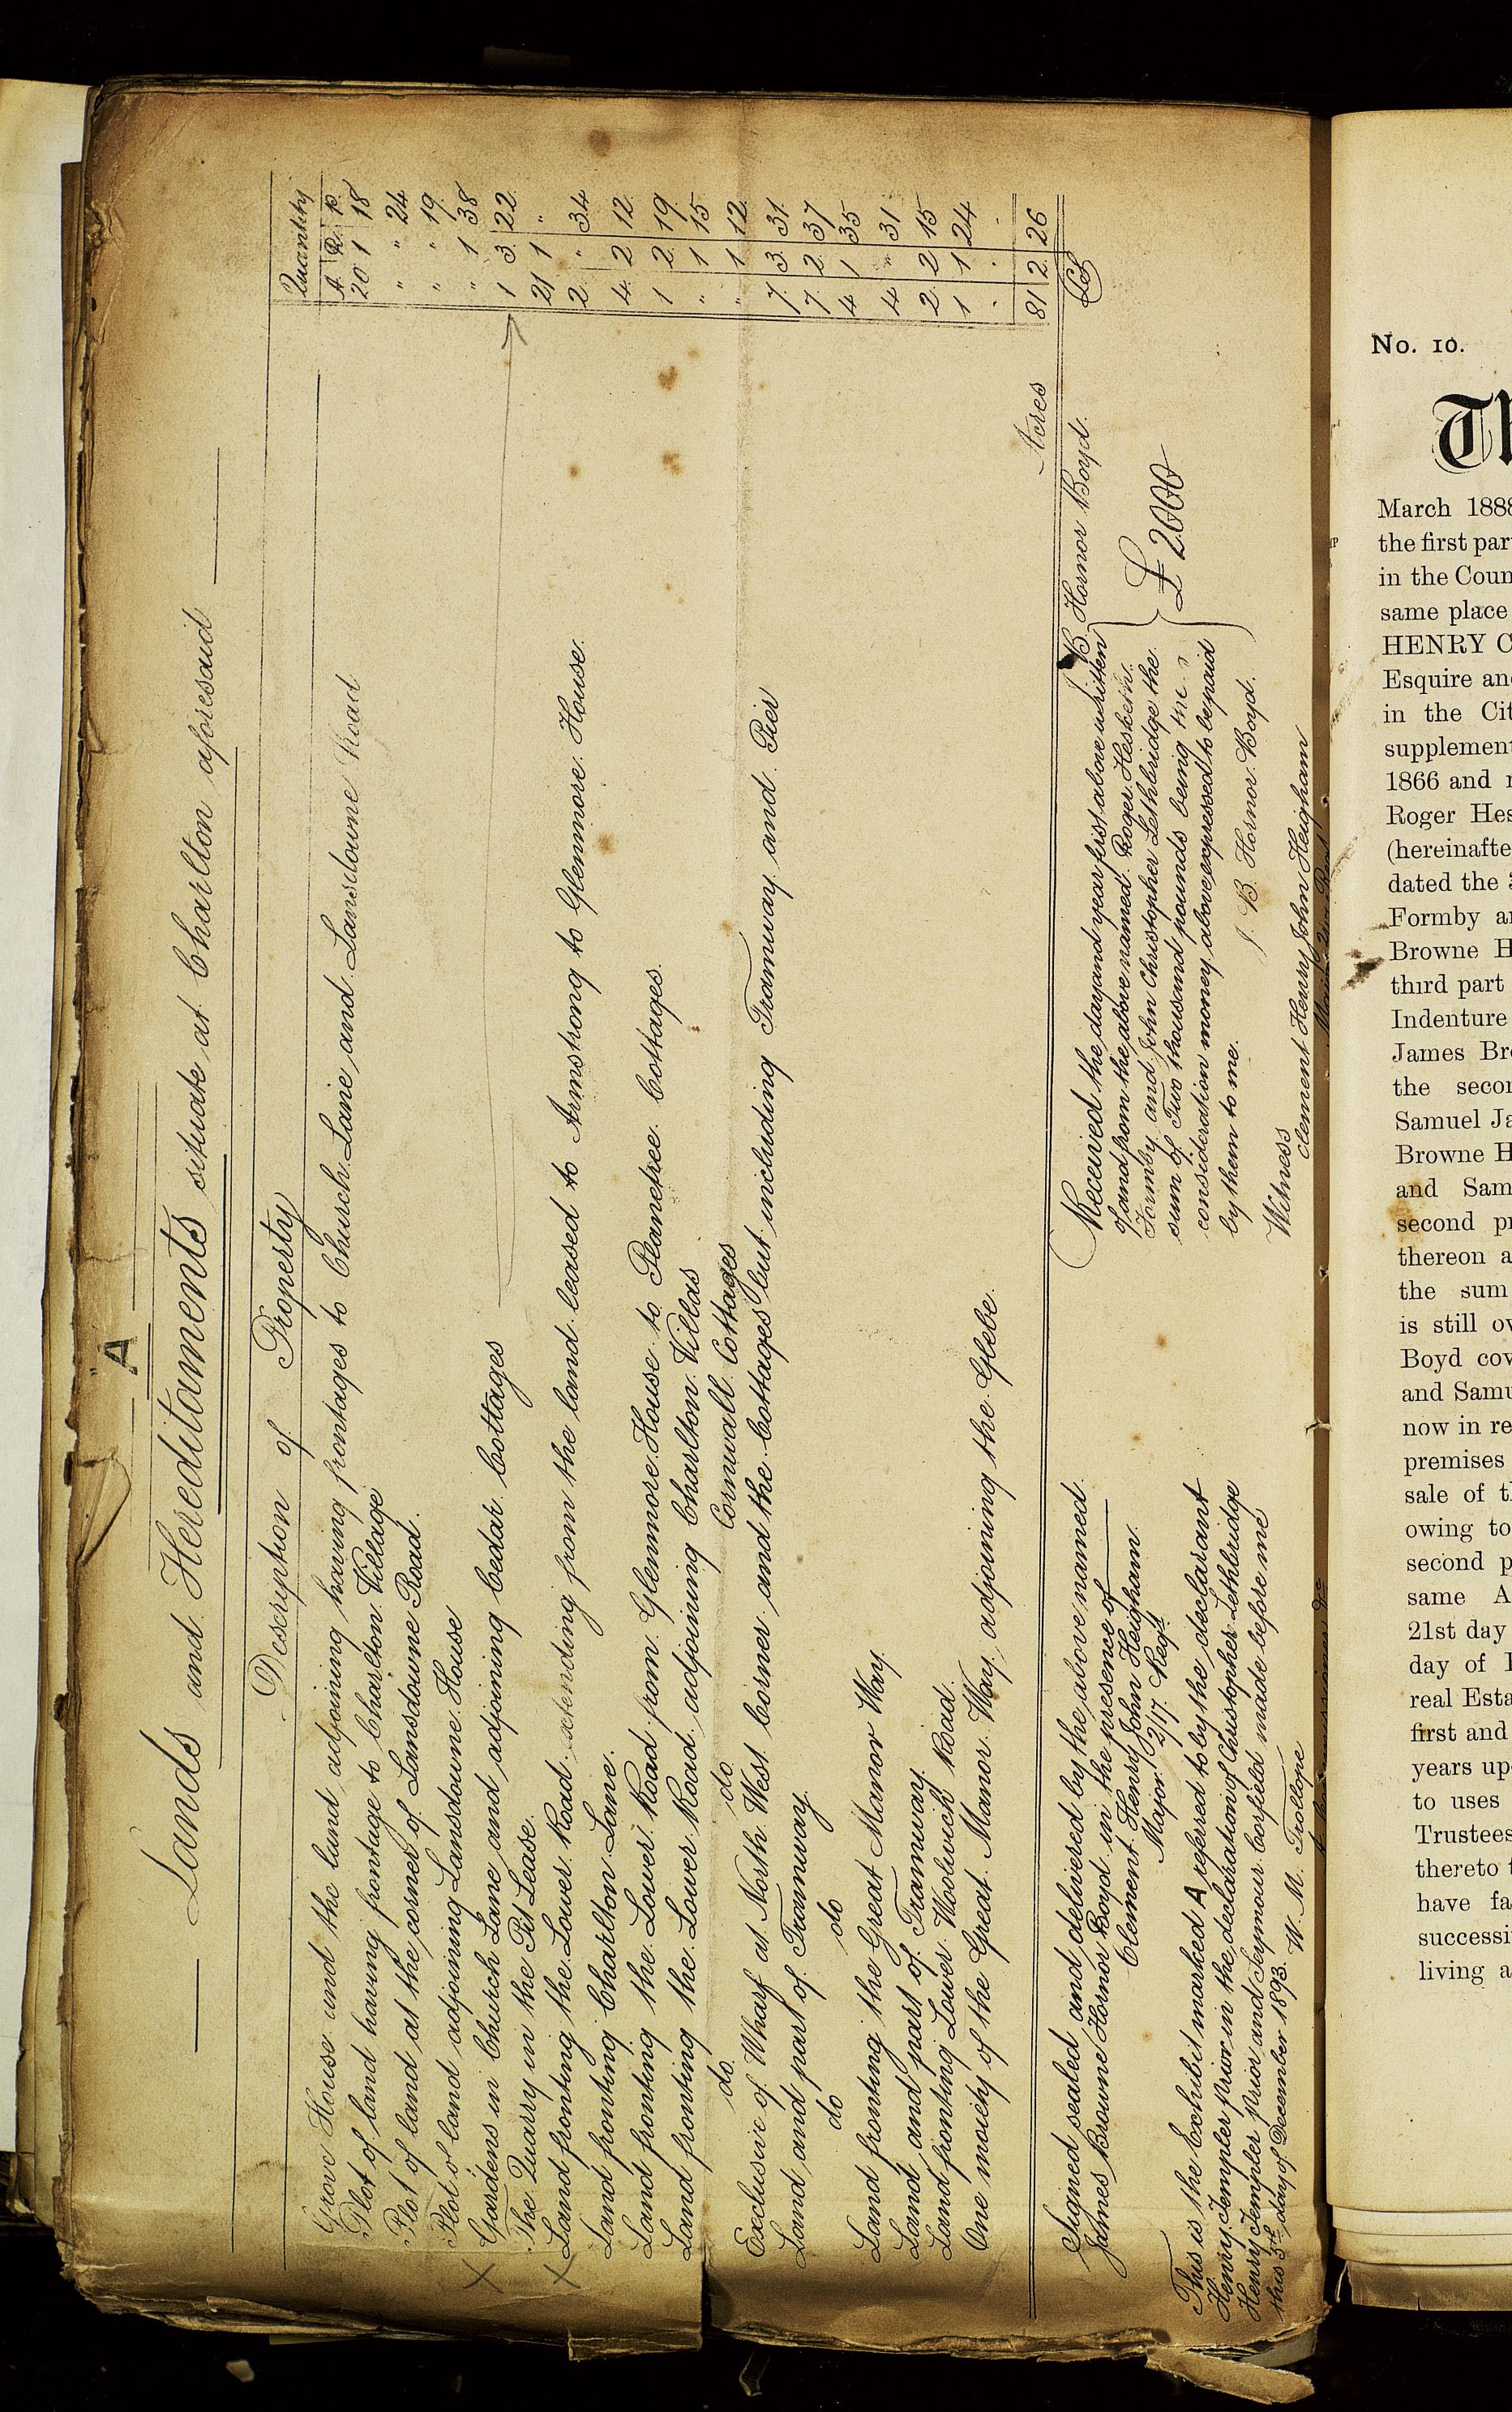 A
Lands and Hereditaments situate at Charlton aforesaid
Description of Property
Quantity
A. R. P.
Grove House and the land adjoining having frontages to Church Lane and Lansdowne Road 20 1 18
Plot of land having frontage to Charlton Village " " 24
Plot of land at the corner of Lansdowne Road. " " 19.
Plot of land adjoining Lansdowne House " 1 38
X Gardens in Church Lane and adjoining Cedar Cottages 1 3. 22.
The Quarry in the Pit Lease. 21 1 "
X Land fronting the Lower Road extending from the land leased to Armstrong to Glenmore House. 2 " 34
Land fronting Charlton Lane. 4. 2 12.
Land fronting the Lower Road from Glenmore House to Planetree Cottages. 1 2. 19.
Land fronting the Lower Road adjoining Charlton Villas " 1 15.
do. do. Cornwall Cottages " 1 12.
Exclusive of Wharf at North West Corner and the Cottages but including Tramway and Pier 7. 3. 31.
Land and part of Tramway. 7. 2. 37
do do 4 1 35
Land fronting the Great Manor Way. 4 " 31
Land and part of Tramway. 2 2 15
Land fronting Lower Woolwich Road. 1 1 24
One moiety of the Great Manor Way, adjoining the Glebe. . . .
Acres 81 2 26
Signed sealed and delivered by the above named
James Browne Hornor Boyd in the presence of
Clement Henry John Heigham.
Major 2/17. Regt.
J. B. Hornor Boyd.
Received the day and year first above written
of and from the above named Roger Hesketh
Formby and John Christopher Lethbridge the
sum of Two thousand pounds being the
consideration money above expressed to be paid
by them to me.
£ 2000
J. B. Hornor Boyd.
Witness
Clement Henry John Heigham
This is the Exhibit marked A referred to by the declarant
Henry Templer Prior in the declaration of Christopher Lethbridge
Henry Templer Prior and Seymour Corfield made before me
this 5th day of December 1893.
W. M. Trollope
No. 10.
Th
March 1888
the first par
in the Coun
same place
HENRY C
Esquire and
in the Cit
supplement
1866 and
Roger Hes
(hereinafte
dated the
Formby an
Browne H
third part
Indenture
James Bro
the secon
Samuel Ja
Browne H
and Sam
second pr
thereon a
the sum
is still ov
Boyd cov
and Samu
now in re
premises
sale of t
owing to
second p
same A
21st day
day of
real Esta
first and
years up
to uses
Trustees
thereto t
have fa
successi
living a